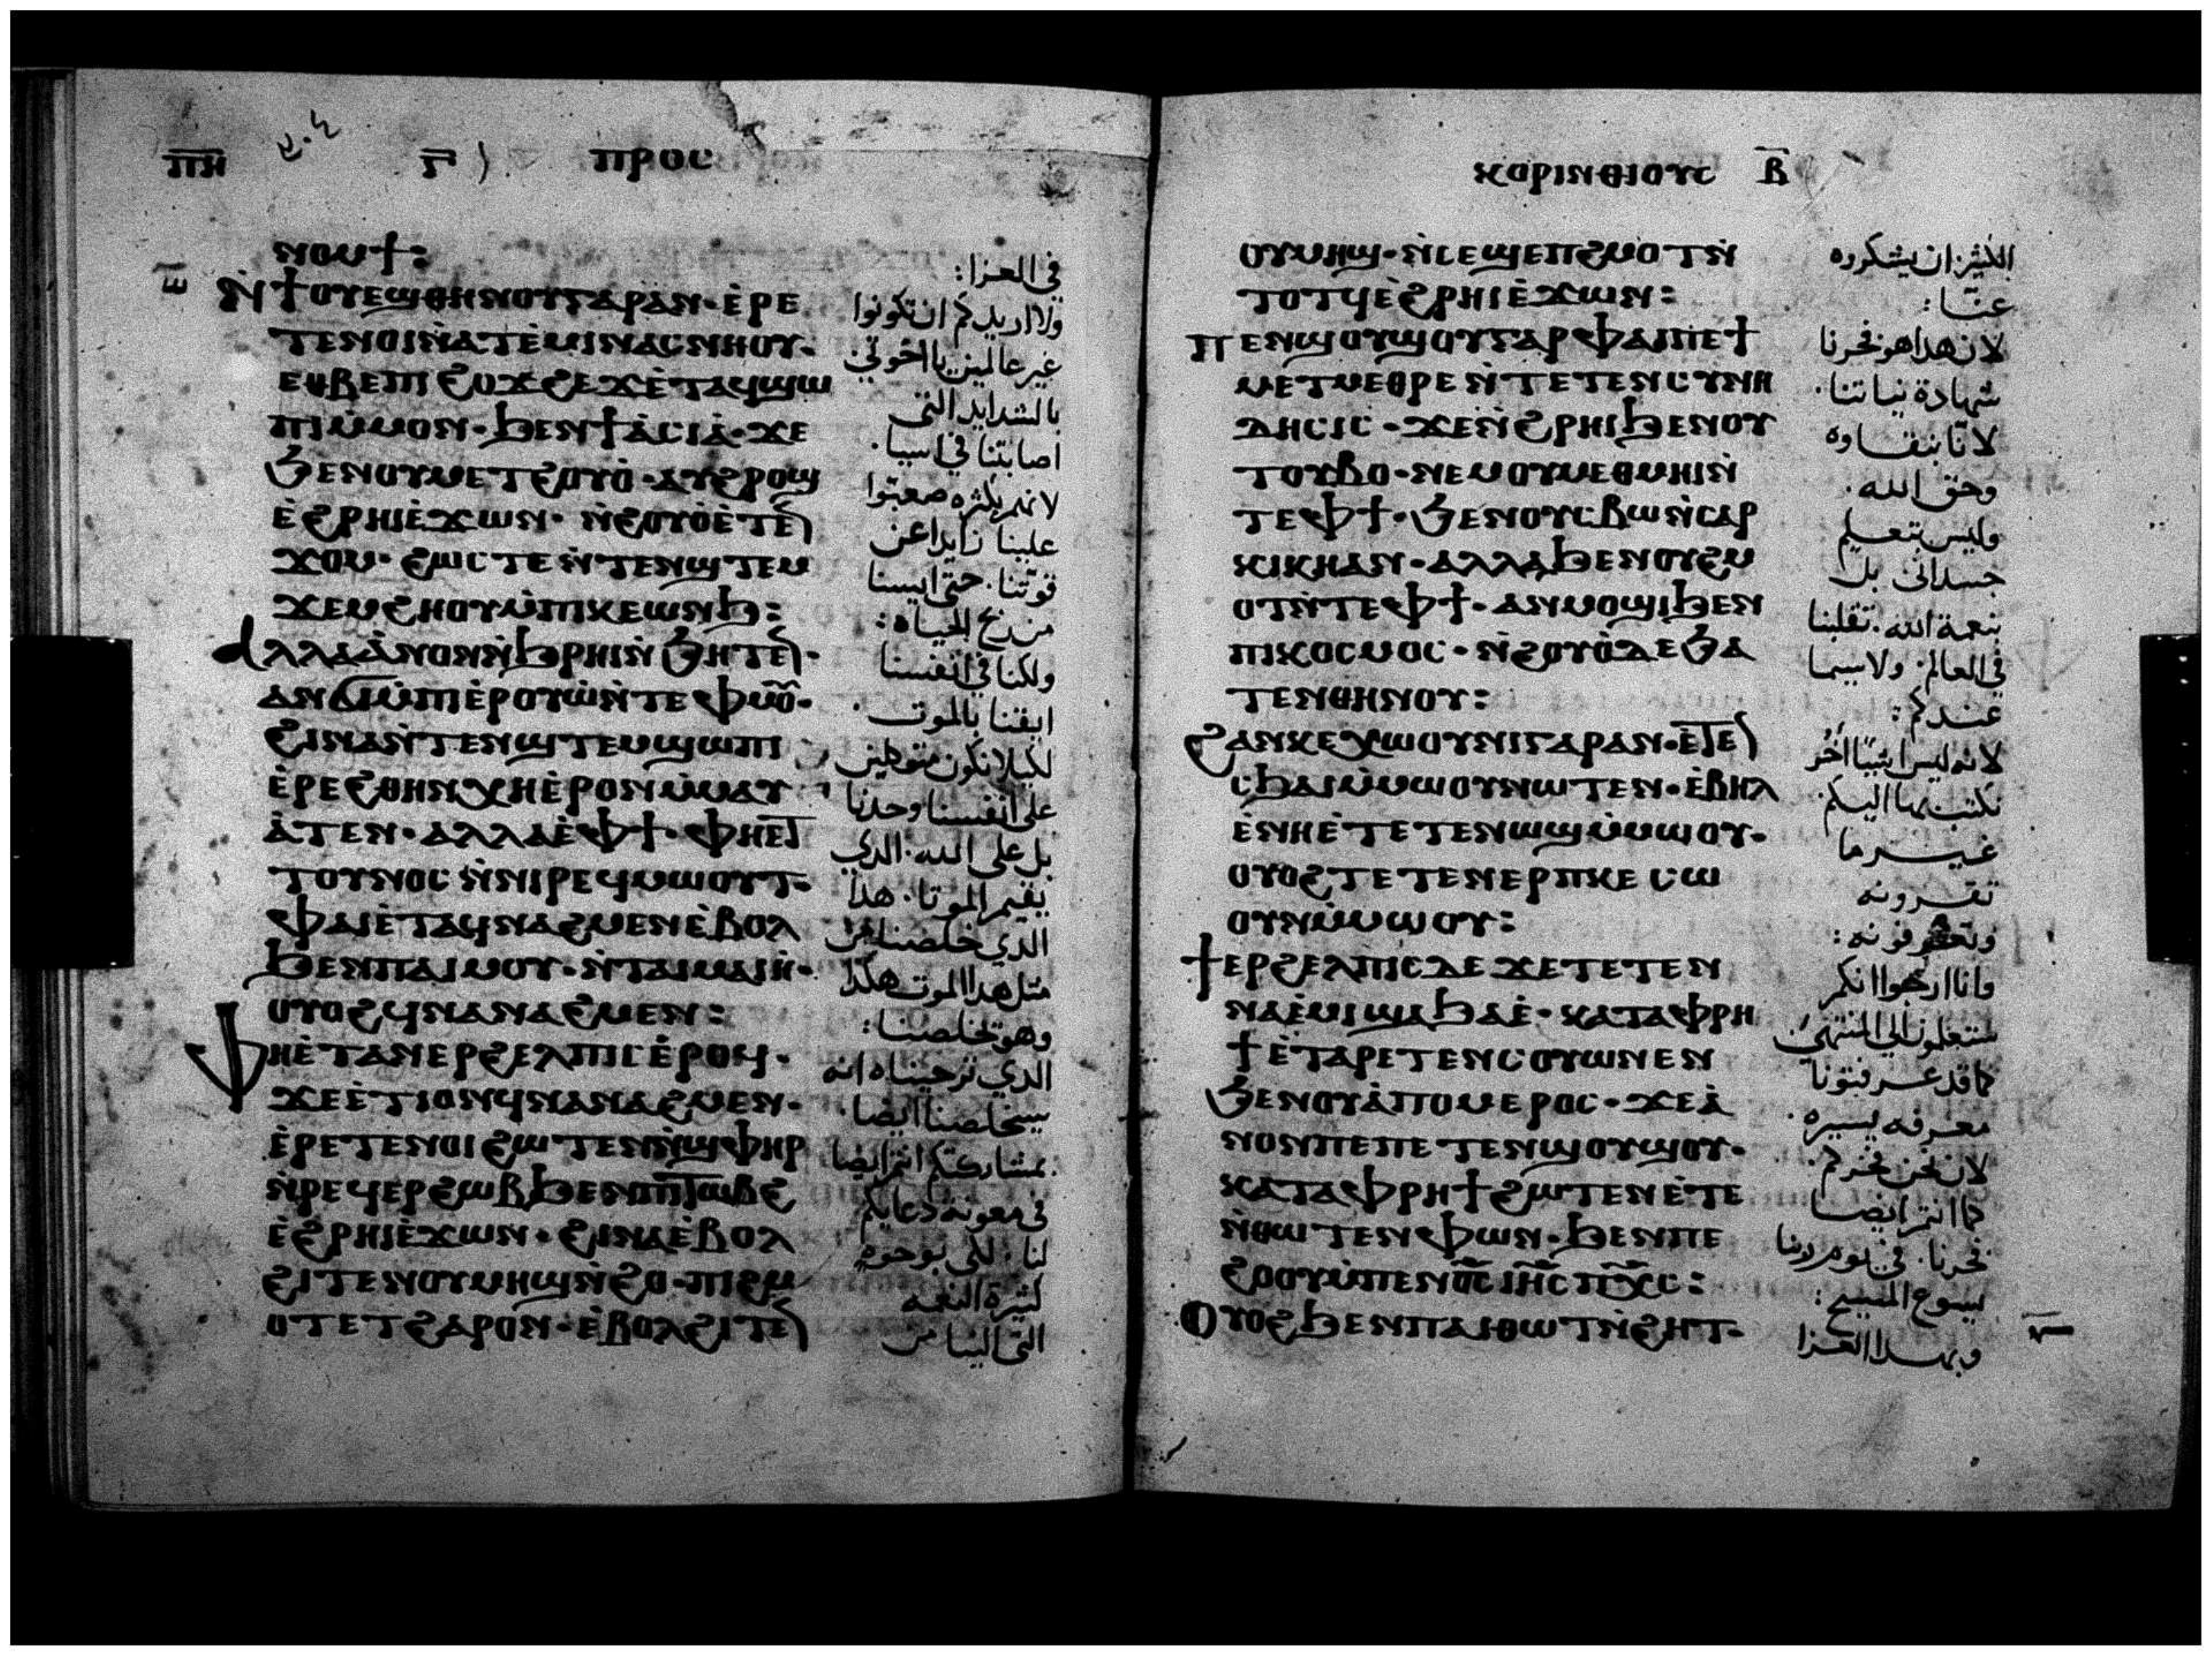 ⲡⲏ ⲅ ⲡⲣⲟⲥ
ⲛⲟⲙϯ:
ⲛ̇ϯⲟⲩⲉϣⲑⲏⲛⲟⲩⲅⲁⲣⲁⲛ·ⲉ̇ⲣⲉ
ⲧⲉⲛⲟⲓⲛ̇ⲁⲧⲉ̇ⲙⲓⲛⲁⲥⲛⲏⲟⲩ·
ⲉⲑⲃⲉⲡⲓϩⲟϫϩⲉϫⲉ̇ⲧⲁϥϣⲱ
ⲡⲓⲙ̇ⲙⲟⲛ·ϧⲉⲛϯⲁ̇ⲥⲓⲁ̇·ϫⲉ
ϧⲉⲛⲟⲩⲙⲉⲧϩⲟⲩⲟ̇·ⲁⲩϩⲣⲟϣ
ⲉ̇ϩⲣⲏⲓⲉ̇ϫⲱⲛ·ⲛ̇ϩⲟⲩⲟⲉ̇ⲧⲉ
ϫⲟⲙ·ϩⲱⲥⲧⲉⲛ̇ⲧⲉⲛϣⲧⲉⲙ
ϫⲉⲙϩⲙⲟⲩⲙ̇ⲡⲕⲉⲱⲛϧ:
ⲁⲗⲗⲁⲁ̇ⲛⲟⲛⲛ̇ϧⲣⲏⲓⲛ̇ϧⲏⲧⲉ·
ⲁⲛϭⲓⲙ̇ⲡⲓⲉ̇ⲣⲟⲩⲱ̇ⲛ̇ⲧⲉⲫⲙⲟ·
ϩⲓⲛⲁⲛ̇ⲧⲉⲛϣⲧⲉⲙϣⲱⲡⲓ
ⲉ̇ⲣⲉϩⲑⲏⲛⲭⲏⲉ̇ⲣⲟⲛⲙ̇ⲙⲁⲩ
ⲁ̇ⲧⲉⲛ·ⲁⲗⲗⲁⲉ̇ⲫϯ·ⲫⲏⲉⲧ
ⲧⲟⲩⲛⲟⲥⲛ̇ⲛⲓⲣⲉϥⲙⲱⲟⲩⲧ·
ⲫⲁⲓⲉ̇ⲧⲁϥⲛⲁϩⲙⲉⲛⲉ̇ⲃⲟⲗ
ϧⲉⲛⲡⲁⲓⲙⲟⲩ·ⲛ̇ⲧⲁⲓⲙⲁⲓⲏ·
ⲟⲩⲟϩϥⲛⲁⲛⲁϩⲙⲉⲛ:
ⲫⲏⲉ̇ⲧⲁⲛⲉⲣϩⲉⲗⲡⲓⲥⲉ̇ⲣⲟϥ·
ϫⲉⲉ̇ⲧⲓⲟⲛϥⲛⲁⲛⲁϩⲙⲉⲛ·
ⲉ̇ⲣⲉⲧⲉⲛⲟⲓϩⲱⲧⲉⲛⲛ̇ϣⲫⲏⲣ
ⲛ̇ⲣⲉϥⲉⲣϩⲱⲃϧⲉⲛⲡⲓⲧⲱⲃϩ
ⲉ̇ϩⲣⲏⲓⲉ̇ϫⲱⲛ·ϩⲓⲛⲁⲉ̇ⲃⲟⲗ
ϩⲓⲧⲉⲛⲟⲩⲙⲏϣⲛ̇ϩⲟ·ⲡⲓϩⲙ
ⲟⲧⲉⲧϩⲁⲣⲟⲛ·ⲉ̇ⲃⲟⲗϩⲓⲧⲉ
في العزا:
ولا اريدكم ان تكونوا
غير عالمين يا اخوتي
بالشدايد التي
اصابتنا في اسيا·
لانهم بكثره صعبوا
علينا زايدا عن
قوتنا· حتى ايسنا
من الحياه:
ولكنا في انفسنا
ابقنا بالموت·
لكيلا نكون متوكلين
على انفسنا وحدنا
بل على الله· الذي
يقيم الموتا· هذا
الذي خلصنا من
مثل هذا الموت هكذا
وهو يخلصنا:
الذي ترجيناه انه
سيخلصنا ايضا·
بمشاركتكم انتم ايضا
في معونه دعايكم
لنا· لكى بوجوه
كثيرة النعمه
التي الينا من
ⲕⲟⲣⲓⲛⲑⲓⲟⲩⲥ ⲃ
ⲟⲩⲙⲏϣ·ⲛ̇ⲥⲉϣⲉⲡϩⲙⲟⲧⲛ̇
ⲧⲟⲧϥⲉ̇ϩⲣⲏⲓⲉ̇ϫⲱⲛ:
ⲡⲉⲛϣⲟⲩϣⲟⲩⲅⲁⲣⲫⲁⲓⲡⲉϯ
ⲙⲉⲧⲙⲉⲑⲣⲉⲛ̇ⲧⲉⲧⲉⲛⲥⲩⲛⲏ
ⲇⲏⲥⲓⲥ·ϫⲉⲛ̇ϩⲣⲏⲓϧⲉⲛⲟⲩ
ⲧⲟⲩⲃⲟ·ⲛⲉⲙⲟⲩⲙⲉⲑⲙⲏⲓⲛ̇
ⲧⲉⲫϯ·ϧⲉⲛⲟⲩⲥⲃⲱⲛ̇ⲥⲁⲣ
ⲕⲓⲕⲏⲁⲛ·ⲁⲗⲗⲁϧⲉⲛⲟⲩϩⲙ
ⲟⲧⲛ̇ⲧⲉⲫϯ·ⲁⲛⲙⲟϣⲓϧⲉⲛ
ⲡⲓⲕⲟⲥⲙⲟⲥ·ⲛ̇ϩⲟⲩⲟ̇ⲇⲉϧⲁ
ⲧⲉⲛⲑⲏⲛⲟⲩ:
ϩⲁⲛⲕⲉⲭⲱⲟⲩⲛⲓⲅⲁⲣⲁⲛ·ⲉ̇ⲧⲉ
ⲥϧⲁⲓⲙ̇ⲙⲱⲟⲩⲛⲱⲧⲉⲛ·ⲉ̇ⲃⲏⲗ
ⲉ̇ⲛⲏⲉ̇ⲧⲉⲧⲉⲛⲱϣⲙ̇ⲙⲱⲟⲩ·
ⲟⲩⲟϩⲧⲉⲧⲉⲛⲉⲣⲡⲕⲉⲥⲱ
ⲟⲩⲛⲙ̇ⲙⲱⲟⲩ:
ϯⲉⲣϩⲉⲗⲡⲓⲥⲇⲉϫⲉⲧⲉⲧⲉⲛ
ⲛⲁⲉ̇ⲙⲓϣⲁϧⲁⲉ̇·ⲕⲁⲧⲁⲫⲣⲏ
ϯⲉ̇ⲧⲁⲣⲉⲧⲉⲛⲥⲟⲩⲱⲛⲉⲛ
ϧⲉⲛⲟⲩⲁ̇ⲡⲟⲙⲉⲣⲟⲥ·ϫⲉⲁ̇
ⲛⲟⲛⲡⲉⲡⲉⲧⲉⲛϣⲟⲩϣⲟⲩ·
ⲕⲁⲧⲁⲫⲣⲏϯϩⲱⲧⲉⲛⲉ̇ⲧⲉ
ⲛ̇ⲑⲱⲧⲉⲛⲫⲱⲛ·ϧⲉⲛⲡⲉ
ϩⲟⲟⲩⲙ̇ⲡⲉⲛⲟ̅ⲥ̅ⲓⲏ̅ⲥ̅ⲡⲭ̅ⲥ̅:
ⲟⲩⲟϩϧⲉⲛⲡⲁⲓⲑⲱⲧⲛ̇ϩⲏⲧ·
الكثير ان يشكروه
عنا:
لان هذا هو فخرنا
شهادة نياتنا·
لانا بنقاوه
وحق الله·
وليس بتعليم
جسداني بل
بنعمة الله· تقلبنا
في العالم· ولا سيما
عندكم:
لانه ليس اشيا اخر
نكتب بها اليكم·
غير ما
تقرونه
وتعرفونه:
وانا ارجوا انكم
ستعلمون الى المنتهى
كما قد عرفتونا
معرفه يسيره·
لان نحن فخركم·
كما انتم ايضا
فخرنا· في يوم ربنا
يسوع المسيح:
وبهذا العزا